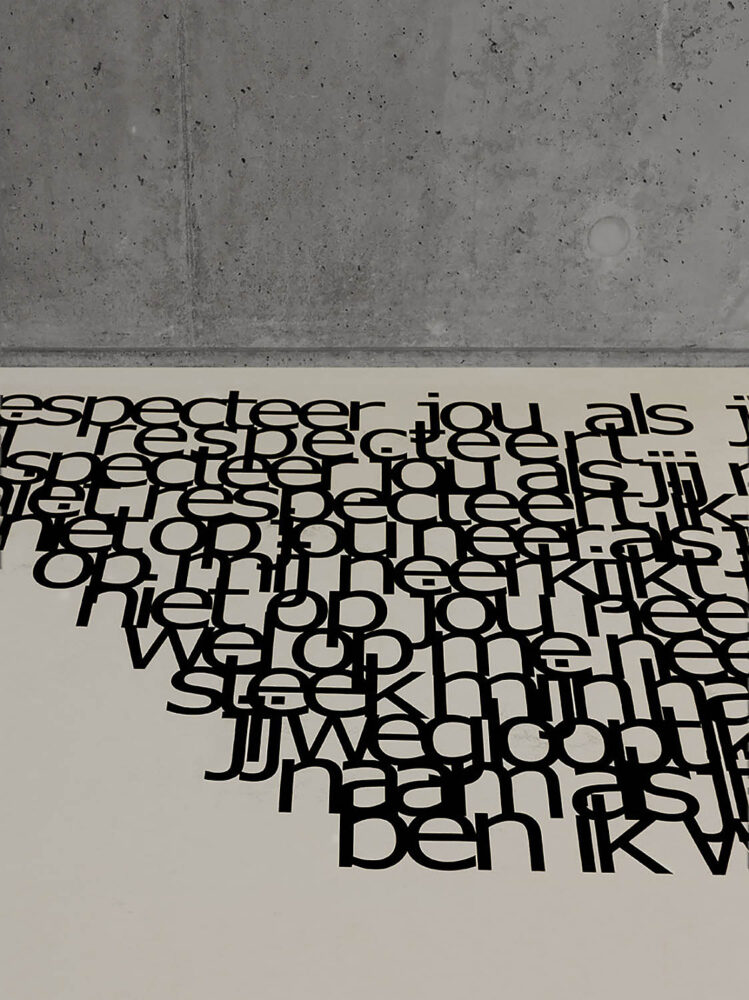 especteer jou als j
respecteert
specteer jou als jij
niet respecteert ik
niet op jou neer als
op mij neerkijkt
niet op jou neer
wel op me nee
steek mijn ha
jij wegloopt ik
naam als ji
ben ik w